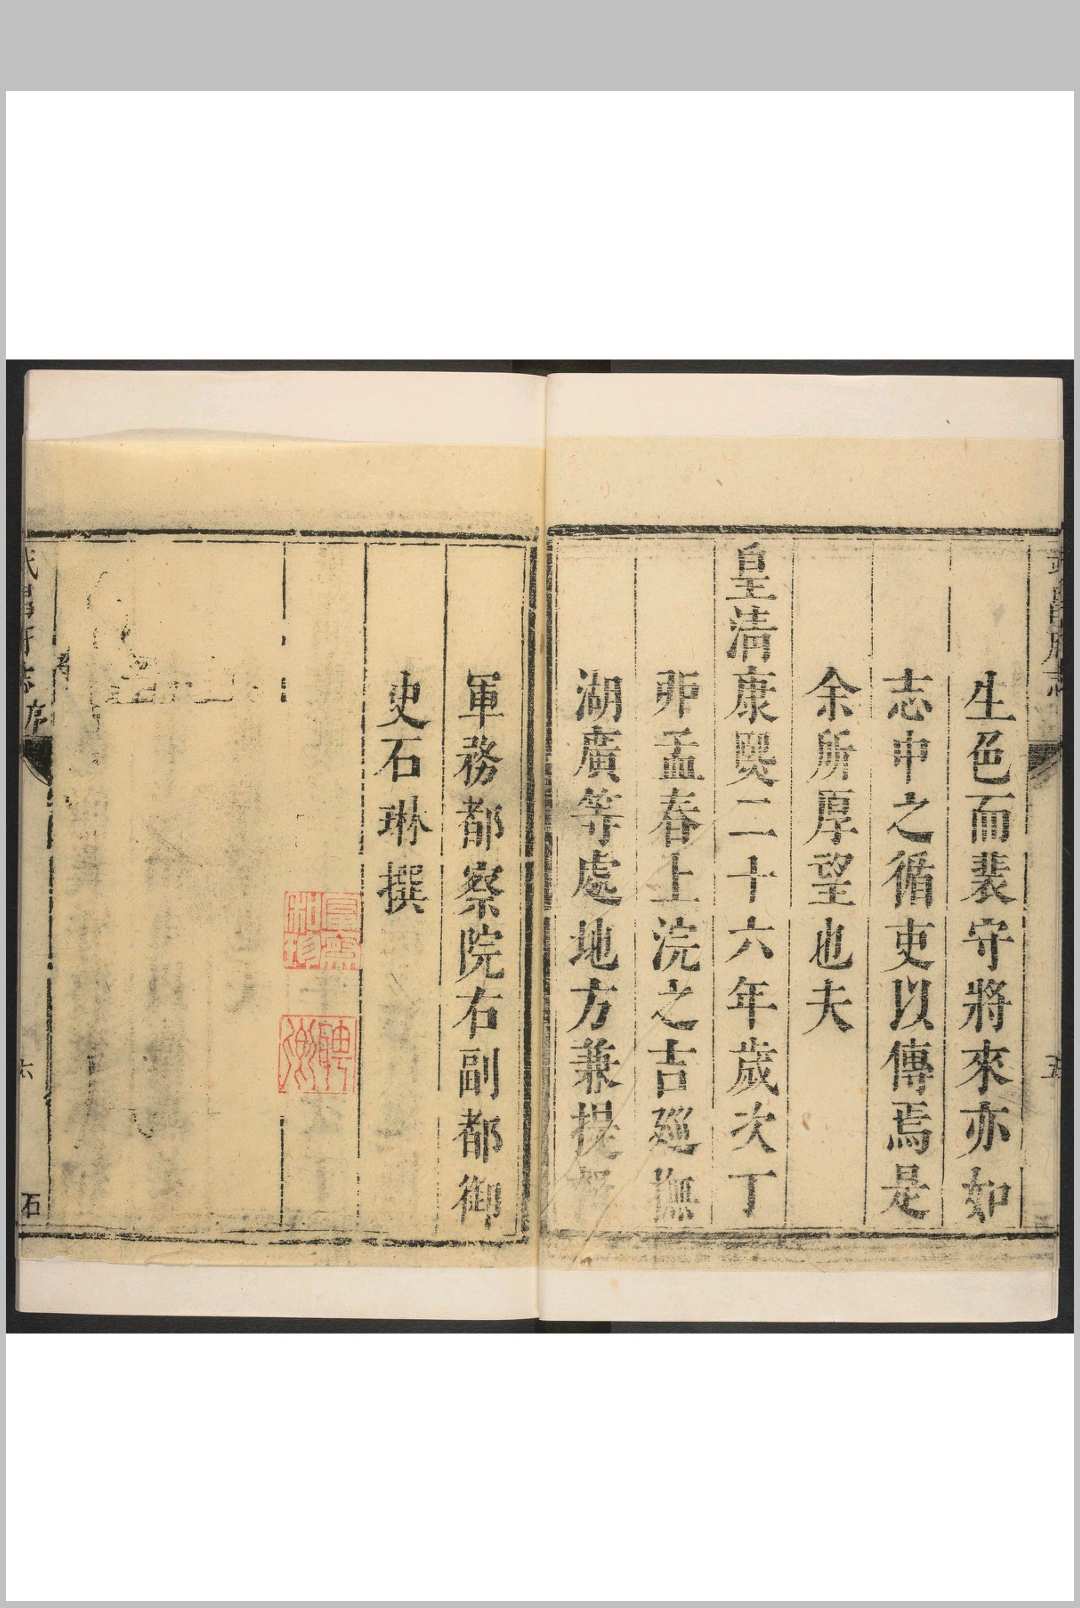 生色而裴守將來亦如
志中之循吏以傳焉是
余所厚望也夫
皇清康熙二十六年歲次丁
卯孟春上浣之吉廵撫
湖廣等處地方兼提督
軍務都察院右副都御
史石琳撰
武昌府志 序
六
石